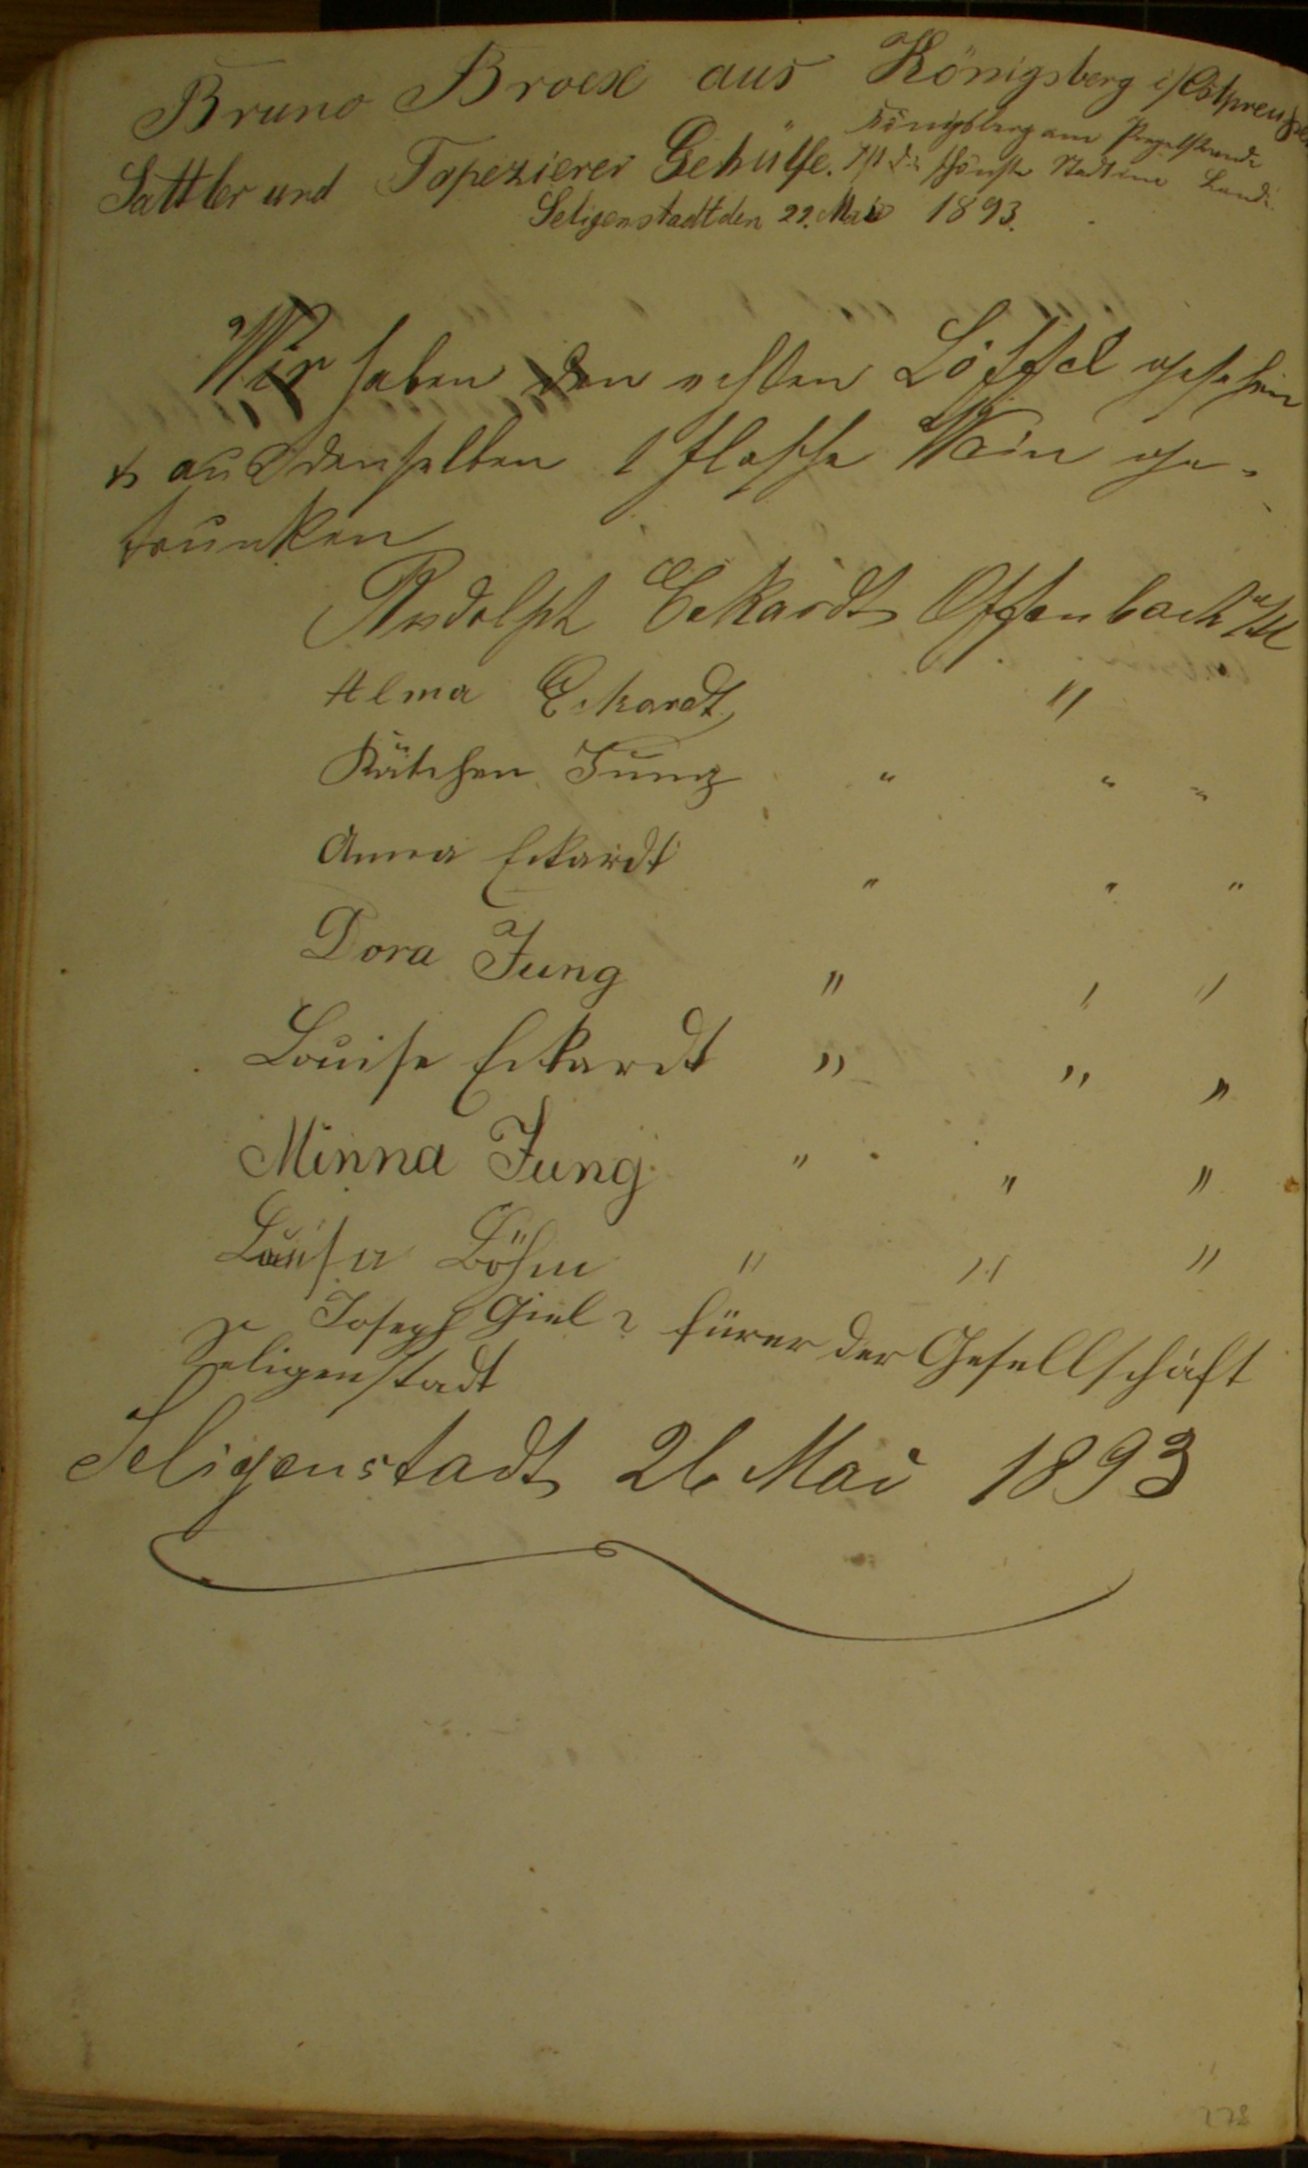 Bruno Broese aus Königsberg i/Ostpreußen
Königsberg am Pregelstrande
Sattler und Tapezierer Gehülfe. Ist die schönste Stadt im Lande.
Seligenstadt den 22. Mai 1893.
Wir haben den echten Löffel gesehen
& aus denselben 1 Flasche Wein ge-
trunken
Rudolph Eckardt Offenbach a/M
Alma Eckardt "
Kätchen Jung " " "
Anna Eckardt " " "
Dora Jung " " "
Louise Eckardt " " "
Minna Jung " " "
Luise Böhm " " "
Joseph Giel fürer der Gesellschaft
Seligenstadt
Seligenstadt 26 Mai 1893
178